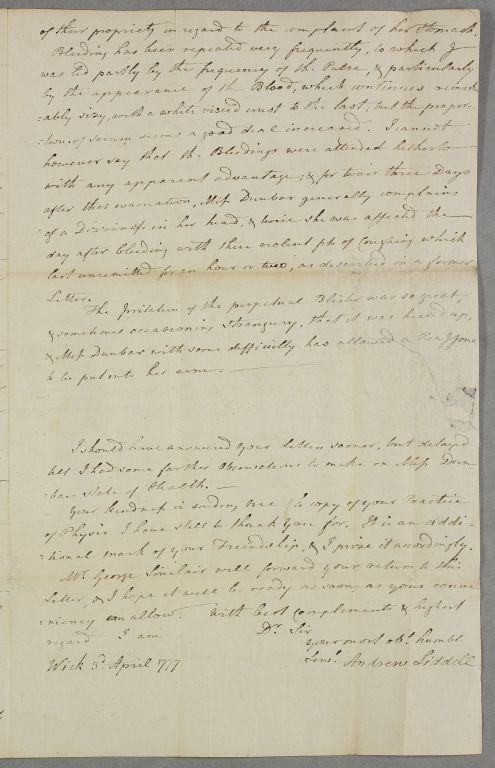 of their propriety in regard to the complaint of her Stomach.
Bleeding has been repeated very frequently, to which I
was led partly by the frequency of the Pulse, & particularly
by the appearance of the Blood, which continues remark
-ably sizy, with a white viscid crust to the last; but the propor-
-tion of serum seems a good deal increased. I cannot
however say that the Bleedings were attended hitherto
with any apparent advantage; & for two or three Days
after that evacuation, Miss Dunbar generally complains
of a Dizziness in her head, & twice she was affected the
day after bleeding with these violent fits of Coughing which
last unremitted for an hour or two, as described in a former
Letter.
The Irritation of the perpetual Blister was so great,
& sometimes occasioning Strangury, that it was healed up,
& Miss Dunbar with some difficulty has allowed a Pea Issue
to be put into her arm.
I should have answered your Letter sooner, but delayed
till I had some farther Observations to make on Miss Dun
-bars state of Health. —
Your kindness in sending me a copy of your Practice
of Physic I have still to thank you for. It is an addi-
-tional mark of your Friendship, & I prize it accordingly.
Mr. George Sinclair will forward your return to this
Letter, & I hope it will be ready as soon as your conve
-niency can allow. With best Complements & highest
regard I am
Dr. Sir
your most obt. humbl
Servt.
Andrew Liddell
Wick 3d. April 1777